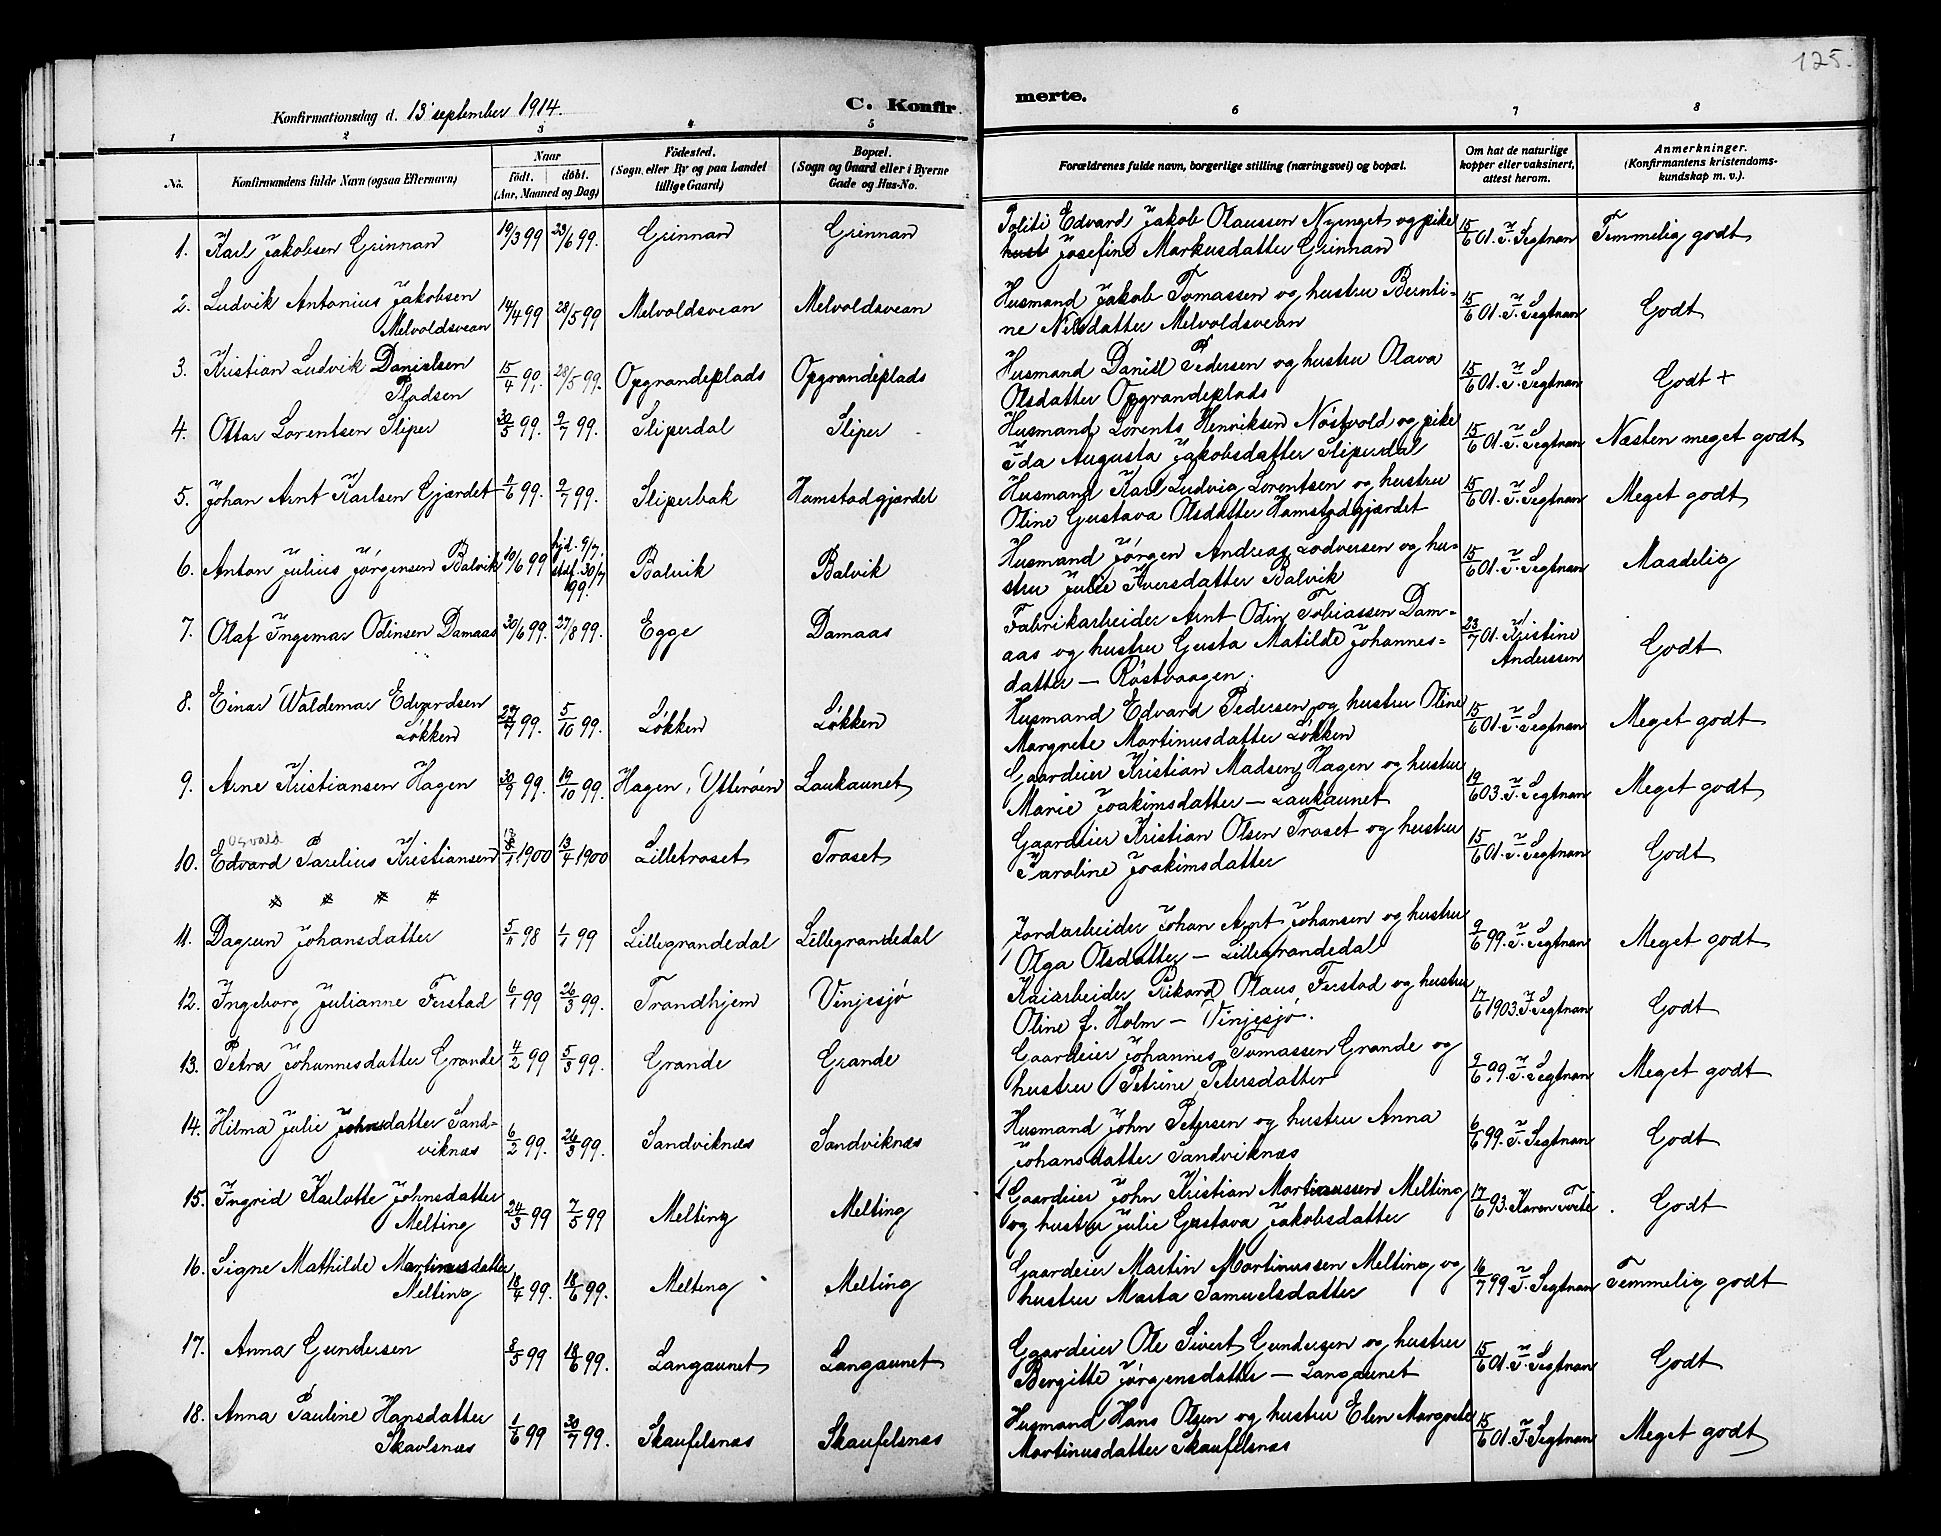 125.
Konfirmationsdag d. 13' september 1914.
C. Konfirmerte.
1 2 3 4 5 6 7 8
No. Konfirmandens fulde Navn (ogsaa Efternavn) Naar Födt. döbt. (Aar, Maaned og Dag) Födested. (Sogn eller By og paa Landet tillige Gaard) Bopæl. (Sogn og Gaard eller i Byerne Gade og Hus-No. Forældrenes fulde navn, borgerlige stilling (næringsvei) og bopæl. Om hat de naturlige kopper eller vaksinert, attest herom. Anmerkninger. (Konfirmantens kristendomskundskap m. v.).
1. Karl Jakobsen Grinnan 19/3 99 23/6 99. Grinnan Grinnan Politi Edvard Jakob Olaussen Nyenget og pike
hust Josefine Markusdatter Grinnan 15/6 01. I. Segtnan Temmelig godt
2. Ludvik Antonius Jakobsen
Melvoldsvean 14/4 99 28/5 99 Melvoldsvean Melvoldsvean Husmand Jakob Tomassen og hustru Bernti-
ne Nilsdatter Melvoldsvean 15/6 01. I. Segtnan Godt
3. Kristian Ludvik Danielsen
Pladsen 15/4 99. 28/5 99. Opgrandeplads Opgrandeplads Husmand Daniel Pedersen og hustru Olava
Olsdatter Opgrandeplads 15/6 01. I. Segtnan Godt +
4. Ottar Lorentsen Sliper 30/5 99. 9/7 99. Sliperdal Sliper Husmand Lorents Henriksen Nöstvold og pike
Ida Augusta Jakobsdatter Sliperdal 15/6 01. I. Segtnan Næsten meget godt
5. Johan Arnt Karlsen Gjærdet /6 99. 9/7 99. Sliperbak Hamstadgjærdet Husmand Karl Ludvig Lorentsen og hustru
Oline Gustava Olsdatter Hamstadgjærdet 15/6 01. I. Segtnan Meget godt
6. Anton Julius Jörgensen Balvik 10/6 99 hjd. 9/7. stsf. 30/7 99. Balvik Balvik Husmand Jörgen Andreas Lodversen og hu-
stru Julie Iversdatter Balvik 15/6 01. I. Segtnan Maadelig
7. Olaf Ingemar Odinsen Damaas 30/6 99. 27/8 99. Egge Damaas Fabrikarbeider Arnt Odin Tobiassen Dam-
aas og hustru Gusta Matilde Johannes-
datter — Röstvaagen. 23/7 01. Kristine Anderssen Godt
8. Einar Waldemar Edvardsen
Lökken 99. 5/10 99. Lökken Lökken Husmand Edvard Pedersen og hustru Oline
Margrete Martinusdatter Lökken 15/6 01. I. Segtnan Meget godt
9. Arne Kristiansen Hagen 30/9 99. 19/10 99. Hagen, Ytteröen Laukaunet Gaardeier Kristian Madsen Hagen og hustru
Marie Joakimsdatter — Laukaunet 19/6 03. I. Segtnan Meget godt
Osvald
10. Edvard Parelius Kristiansen 1900 13/4 1900 Lilletraset Traset Gaardeier Kristian Olsen Traset og hustru
Karoline Joakimsdatter 15/6 01. I. Segtnan Godt
# # # #
11. Dagrun Johansdatter 5/11 98 1/1 99 Lillegrandedal Lillegrandedal Jordarbeider Johan Arnt Johansen og hustru
Olga Olsdatter — Lillegrandedal 9/6 99. I. Segtnan Meget godt
12. Ingeborg Julianne Ferstad 6/1 99 26/3 99. Trondhjem Vinjesjö Kaiarbeider Rikard Olaus Ferstad og hustru
Oline f. Holm — Vinjesjö. 17/6 1903. I. Segtnan Godt
13. Petra Johannesdatter Grande 4/2 99 5/3 99. Grande Grande Gaardeier Johannes Tomassen Grande og
hustru Petrine Petersdatter 9/6 99. I. Segtnan Meget godt
14. Hilma Julie Johnsdatter Sand-
viknæs 6/2 99. 26/3 99. Sandviknæs Sandviknæs Husmand John Petersen og hustru Anna
Johansdatter Sandviknæs 6/6 99. I. Segtnan Godt
15. Ingrid Karlotte Johnsdatter
Melting 24/3 99 7/5 99 Melting Melting Gaardeier John Kristian Martinussen Melting
og hustru Julie Gustava Jakobsdatter 17/6 93. Karen Tveite. Godt
16. Signe Mathilde Martinusdatter
Melting 18/4 99. 18/6 99. Melting Melting Gaardeier Martin Martinussen Melting og
hustru Marta Samuelsdatter 16/7 99. I. Segtnan Temmelig godt
17. Anna Gundersen 8/5 99 18/6 99. Langaunet Langaunet Gaardeier Ole Sivert Gundersen og hustru
Bergitte Jörgensdatter — Langaunet 15/6 01. I. Segtnan Godt
18. Anna Pauline Hansdatter
Skavlsnæs 1/6 99 30/7 99. Skaufelsnæs Skaufelsnæs Husmand Hans Olsen og hustru Elen Margrete
Martinusdatter Skaufelsnæs 15/6 01. I. Segtnan Meget godt